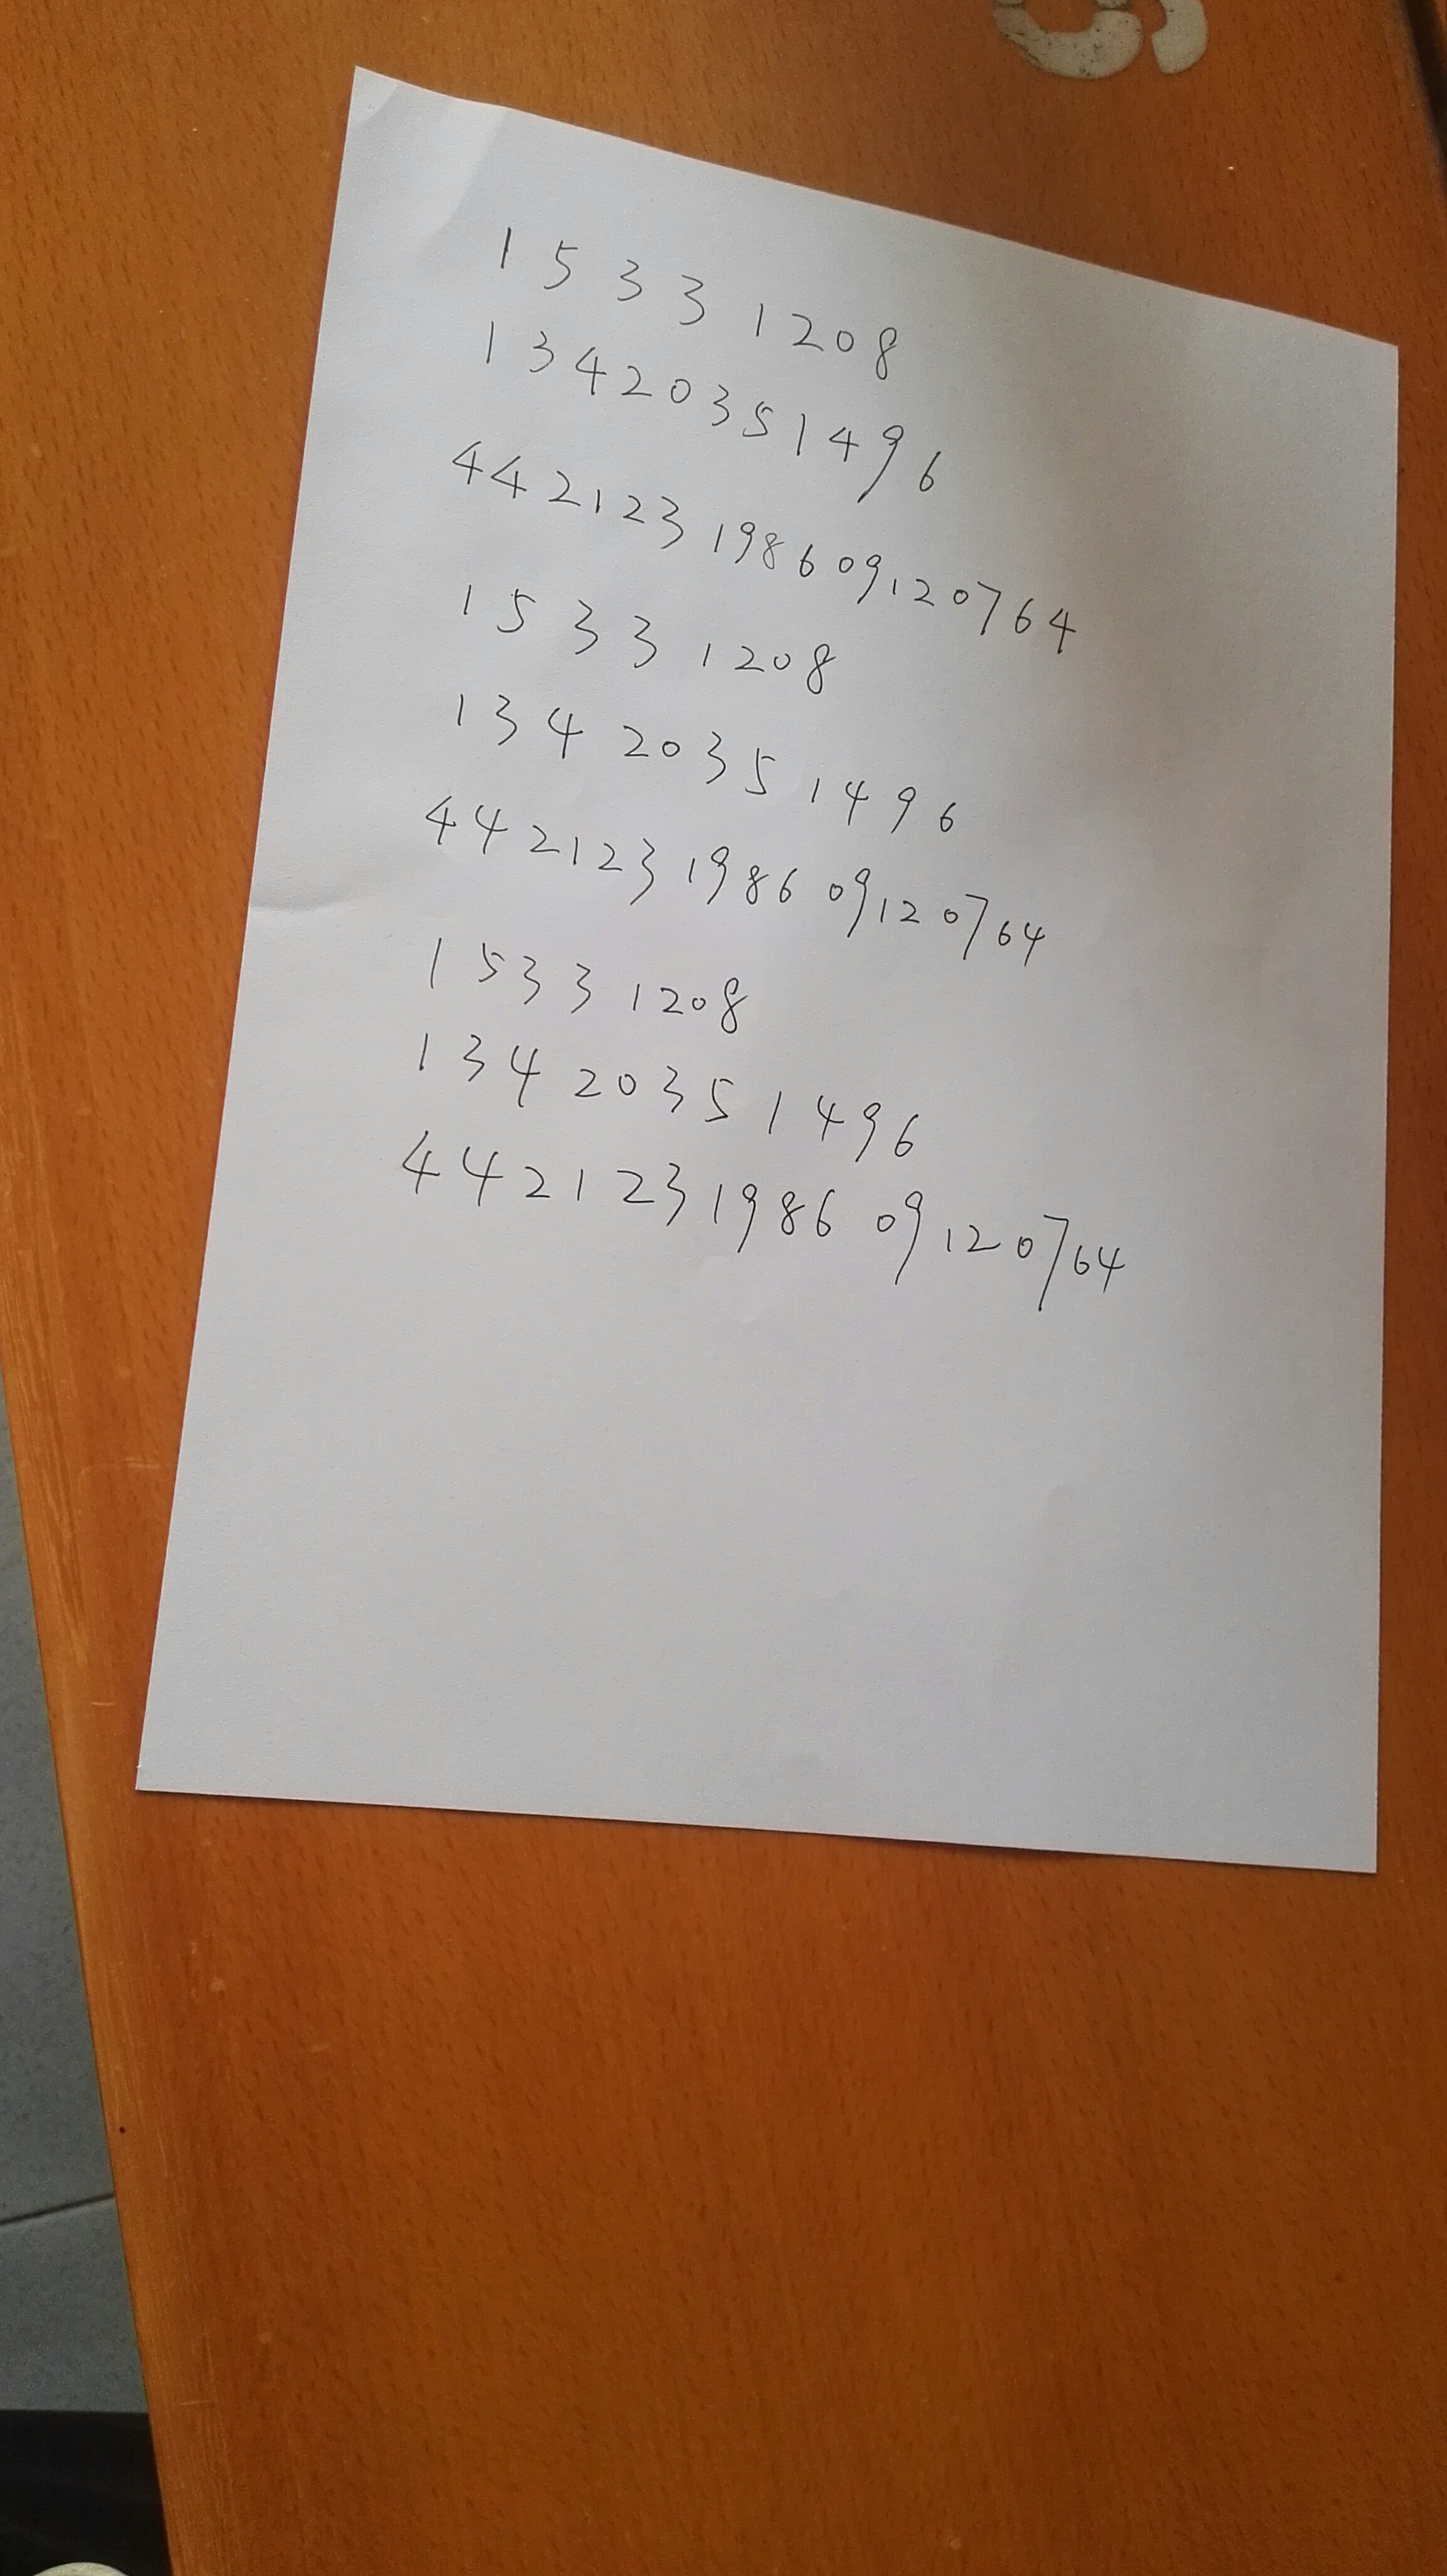 1 5 3 3 1208
13420351496
442123 198609120764
1 5 3 3 1208
134 2035 1496
442123 1986 09120764
1 533 1208
134 2035 1496
442123 1986 09120764